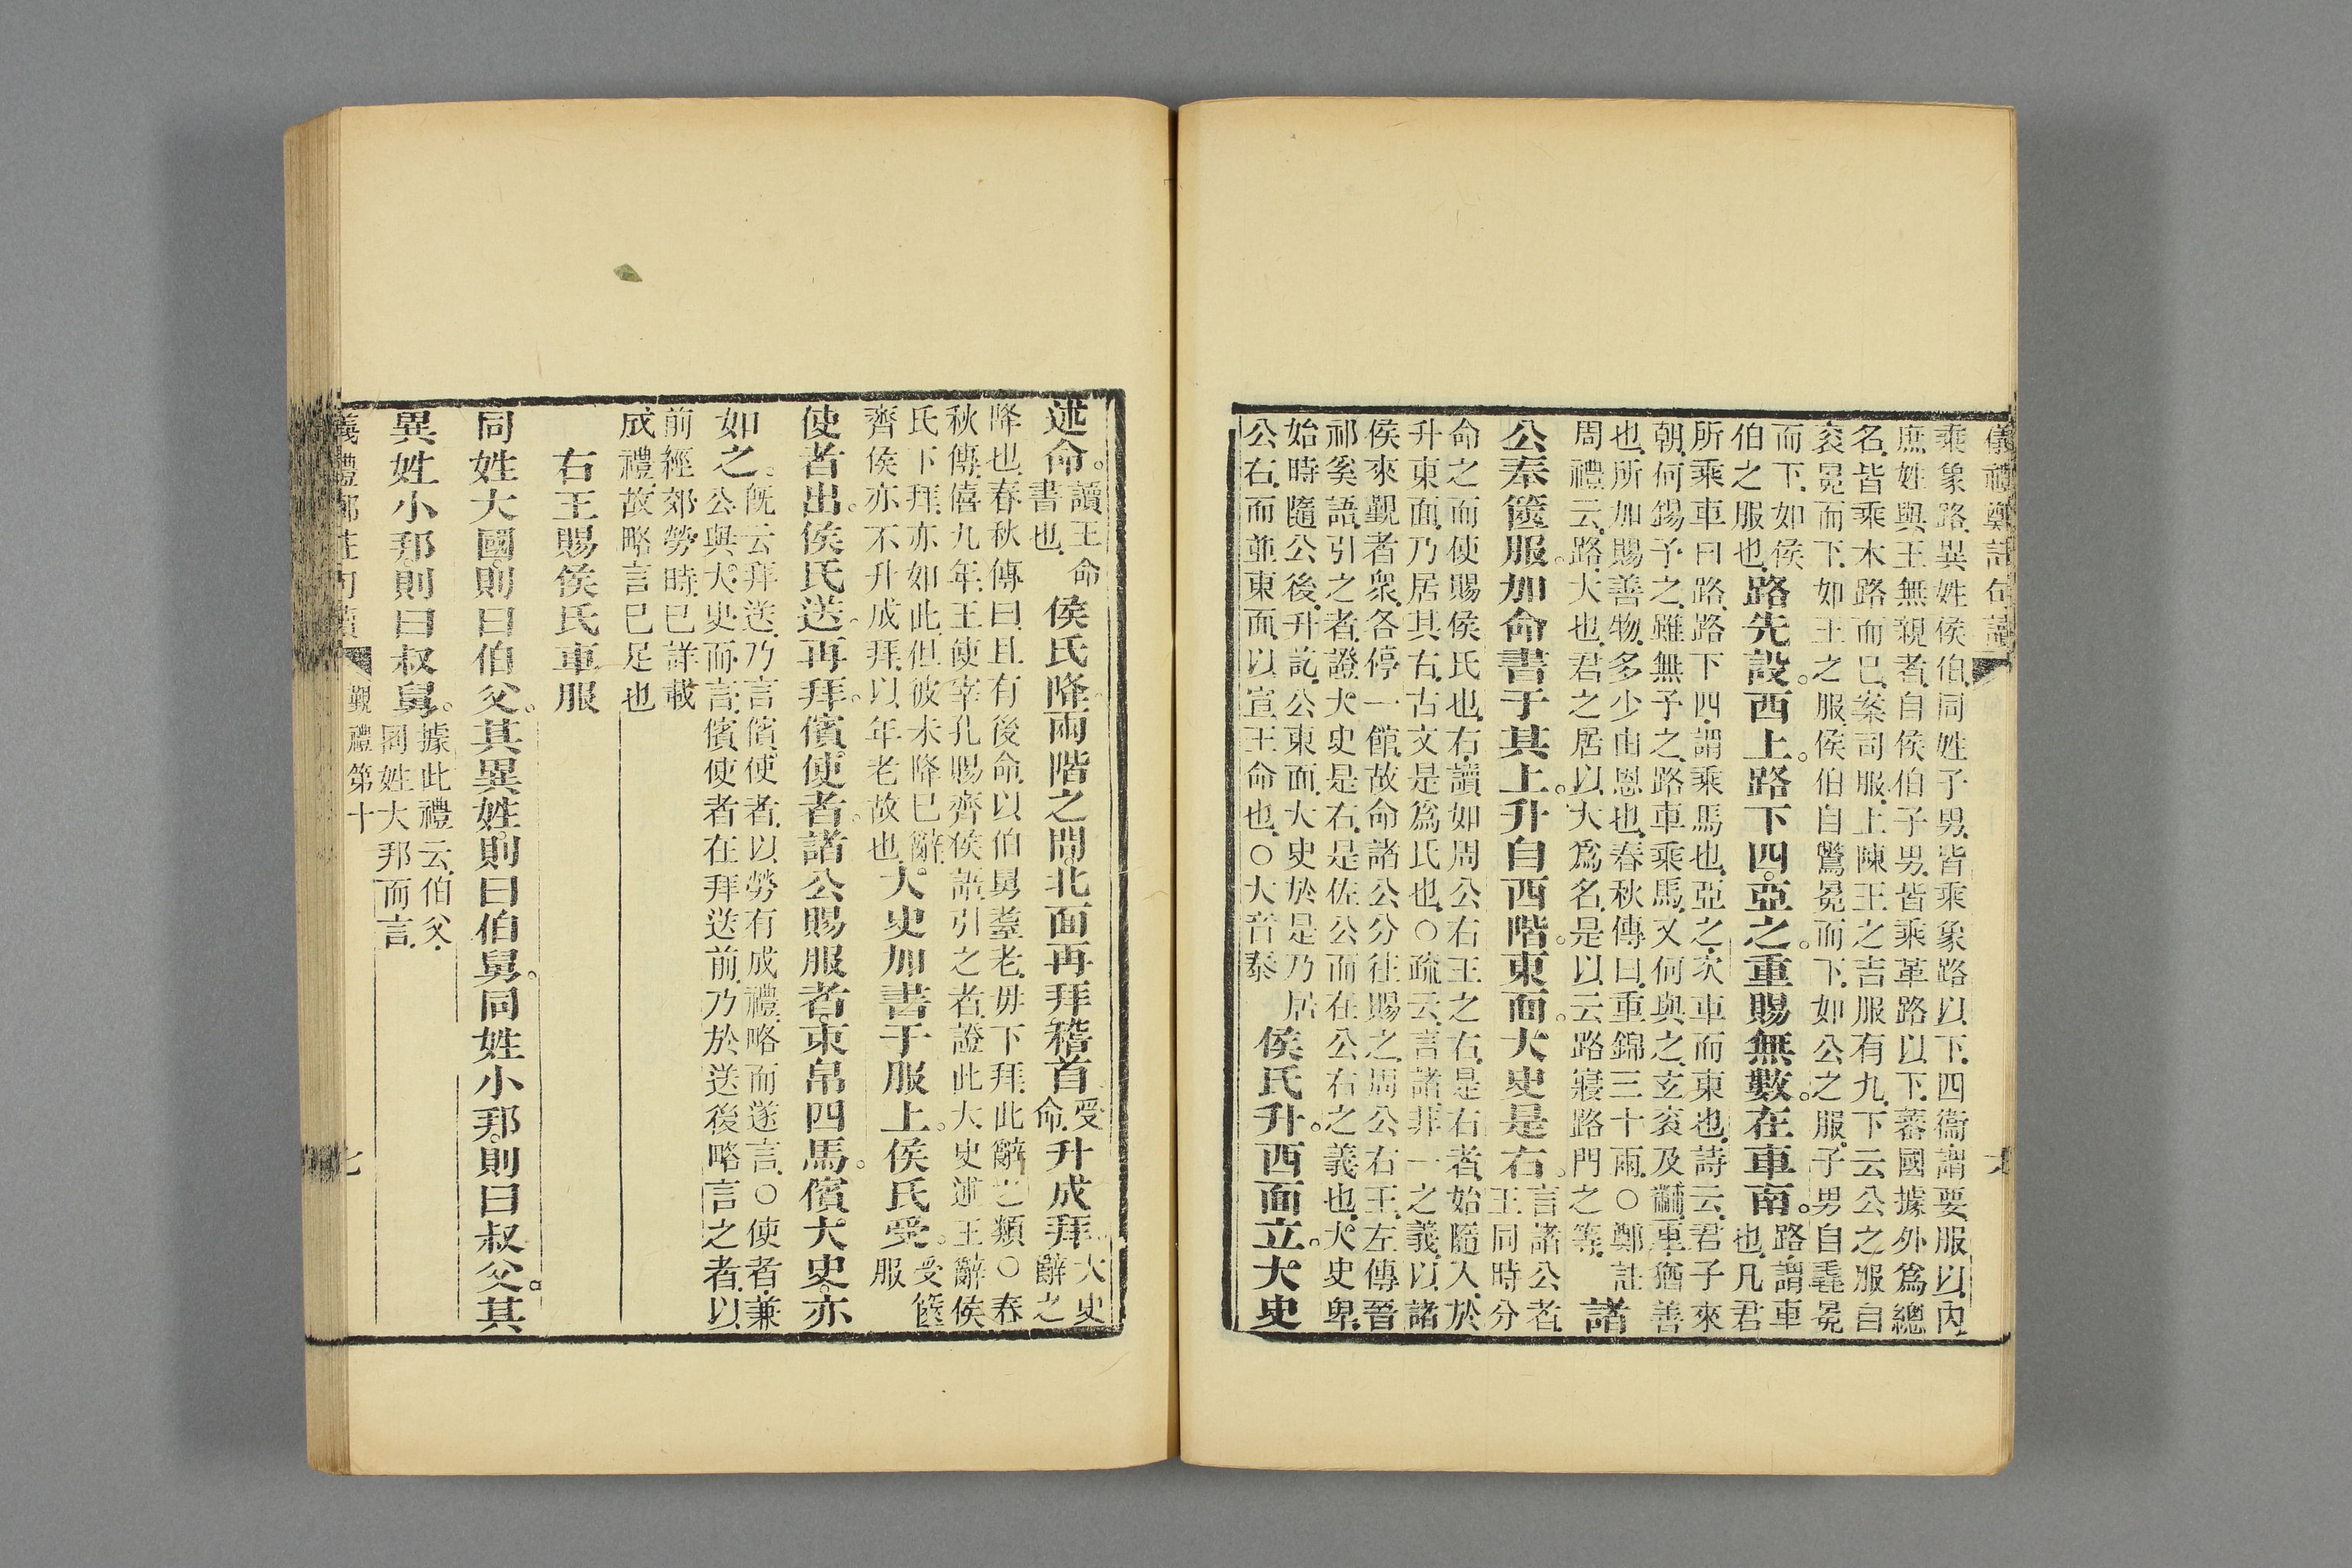 儀禮鄭註句讀
乘象路異姓侯伯同姓子男皆乘象路以下四衞謂要服以內
庶姓與王無親者自侯伯子男皆乘革路以下蕃國據外爲總
名皆乘木路而已案司服上陳王之吉服有九下云公之服自
袞冕而下如王之服侯伯自鷩冕而下如公之服子男自毳冕
而下如侯
伯之服也
路先設西上路下四亞之重賜無數在車南
路謂車
也凡君
所乘車曰路路下四謂乘馬也亞之次車而東也詩云君子來
朝何錫予之雖無予之路車乘馬又何與之玄袞及黼重猶善
也所加賜善物多少由恩也春秋傳曰重錦三十兩○鄭註
周禮云路大也君之居以大爲名是以云路寢路門之等
諸
公奉篋服加命書于其上升自西階東面大史是右
言諸公者
王同時分
命之而使賜侯氏也右讀如周公右王之右是右者始隨入於
升東面乃居其右古文是爲氏也○疏云言諸非一之義以諸
侯來覲者衆各停一館故命諸公分往賜之周公右王左傳晉
祁奚語引之者證大史是右是佐公而在公右之義也大史卑
始時隨公後升訖公東面大史於是乃居
公右而並東面以宣王命也○大音泰
侯氏升西面立大史
述命
讀王命
書也
侯氏降兩階之間北面再拜稽首
受
命
升成拜
大史
辭之
降也春秋傳曰且有後命以伯舅耋老毋下拜此辭之類○春
秋傳僖九年王使宰孔賜齊侯語引之者證此大史述王辭侯
氏下拜亦如此但彼未降已辭
齊侯亦不升成拜以年老故也
大史加書于服上侯氏受
受篋
服
使者出侯氏送再拜儐使者諸公賜服者束帛四馬儐大史亦
如之
旣云拜送乃言儐使者以勞有成禮略而遂言○使者兼
公與大史而言儐使者在拜送前乃於送後略言之者以
前經郊勞時已詳載
成禮故略言已足也
右王賜侯氏車服
同姓大國則曰伯父其異姓則曰伯舅同姓小邦則曰叔父其
異姓小邦則曰叔舅
據此禮云伯父
同姓大邦而言
覲禮第十
七